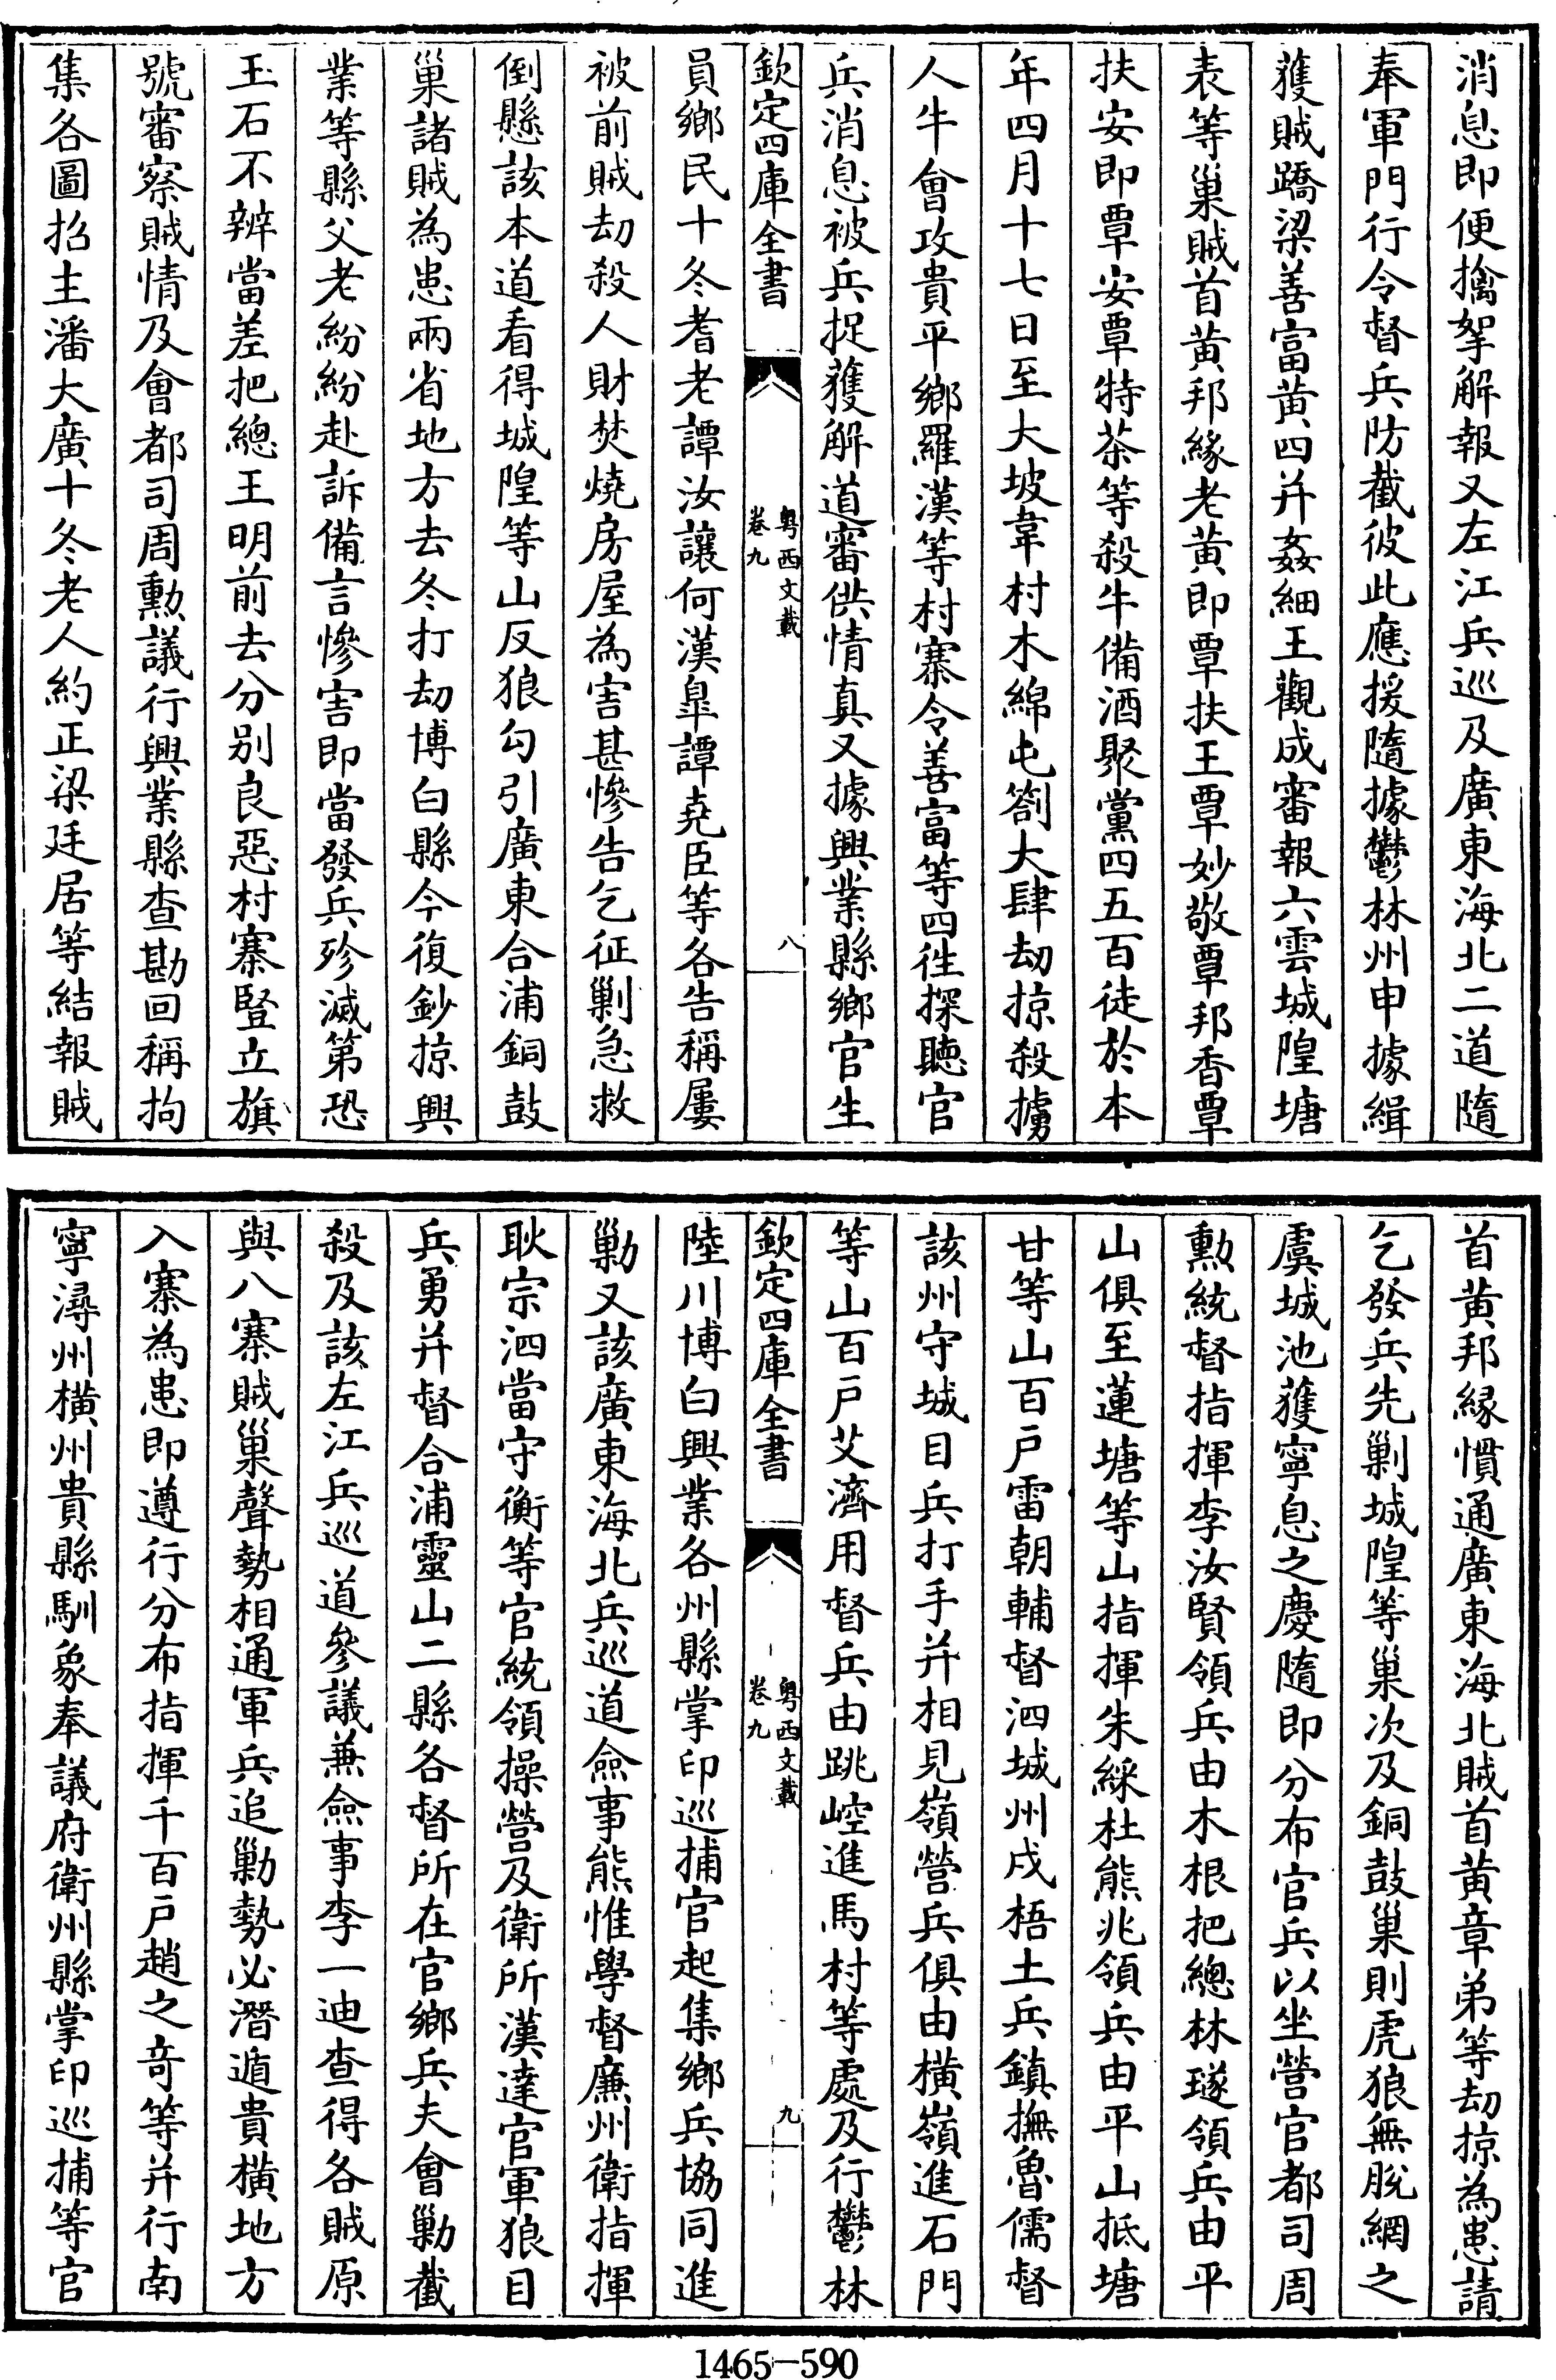 消息即便擒拏解報又左江兵巡及廣東海北二道隨
奉軍門行令督兵防截彼此應援隨據鬱林州申據緝
獲賊蹻梁善富黄四并姦細王觀成審報六雲城隍塘
表等巢賊首黄邦緣老黄即覃扶王覃妙敬覃邦香覃
扶安即覃安覃特茶等殺牛備酒聚黨四五百徒於本
年四月十七日至大坡韋村木綿屯劄大肆劫掠殺擄
人牛會攻貴平鄉羅漢等村寨令善富等四徃探聽官
兵消息被兵捉獲解道審供情真又據興業縣鄉官生
欽定四庫全書
粤西文載
卷九
八
員鄉民十冬耆老譚汝讓何漢臯譚堯臣等各告稱屢
被前賊劫殺人財焚燒房屋為害甚慘告乞征剿急救
倒懸該本道看得城隍等山反狼勾引廣東合浦銅鼓
巢諸賊為患兩省地方去冬打劫博白縣今復鈔掠興
業等縣父老紛紛赴訴備言慘害即當發兵殄滅第恐
玉石不辨當差把總王明前去分别良惡村寨豎立旗
號審察賊情及會都司周勳議行興業縣查勘回稱拘
集各圖招主潘大廣十冬老人約正梁廷居等結報賊
首黄邦緣慣通廣東海北賊首黄章弟等劫掠為患請
乞發兵先剿城隍等巢次及銅鼓巢則虎狼無脱網之
虞城池獲寧息之慶隨即分布官兵以坐營官都司周
勳統督指揮李汝賢領兵由木根把總林璲領兵由平
山俱至蓮塘等山指揮朱綵杜熊兆領兵由平山抵塘
甘等山百户雷朝輔督泗城州戍梧土兵鎮撫魯儒督
該州守城目兵打手并相見嶺營兵俱由橫嶺進石門
等山百户艾濟用督兵由跳崆進馬村等處及行鬱林
欽定四庫全書
粤西文載
卷九
九
陸川博白興業各州縣掌印巡捕官起集鄉兵協同進
勦又該廣東海北兵巡道僉事熊惟學督廉州衛指揮
耿宗泗當守衡等官統領操營及衛所漢達官軍狼目
兵勇并督合浦靈山二縣各督所在官鄉兵夫會勦截
殺及該左江兵巡道參議兼僉事李一迪查得各賊原
與八寨賊巢聲勢相通軍兵追勦勢必潛遁貴橫地方
入寨為患即遵行分布指揮千百户趙之竒等并行南
寧潯州橫州貴縣馴象奉議府衛州縣掌印巡捕等官
1465-590